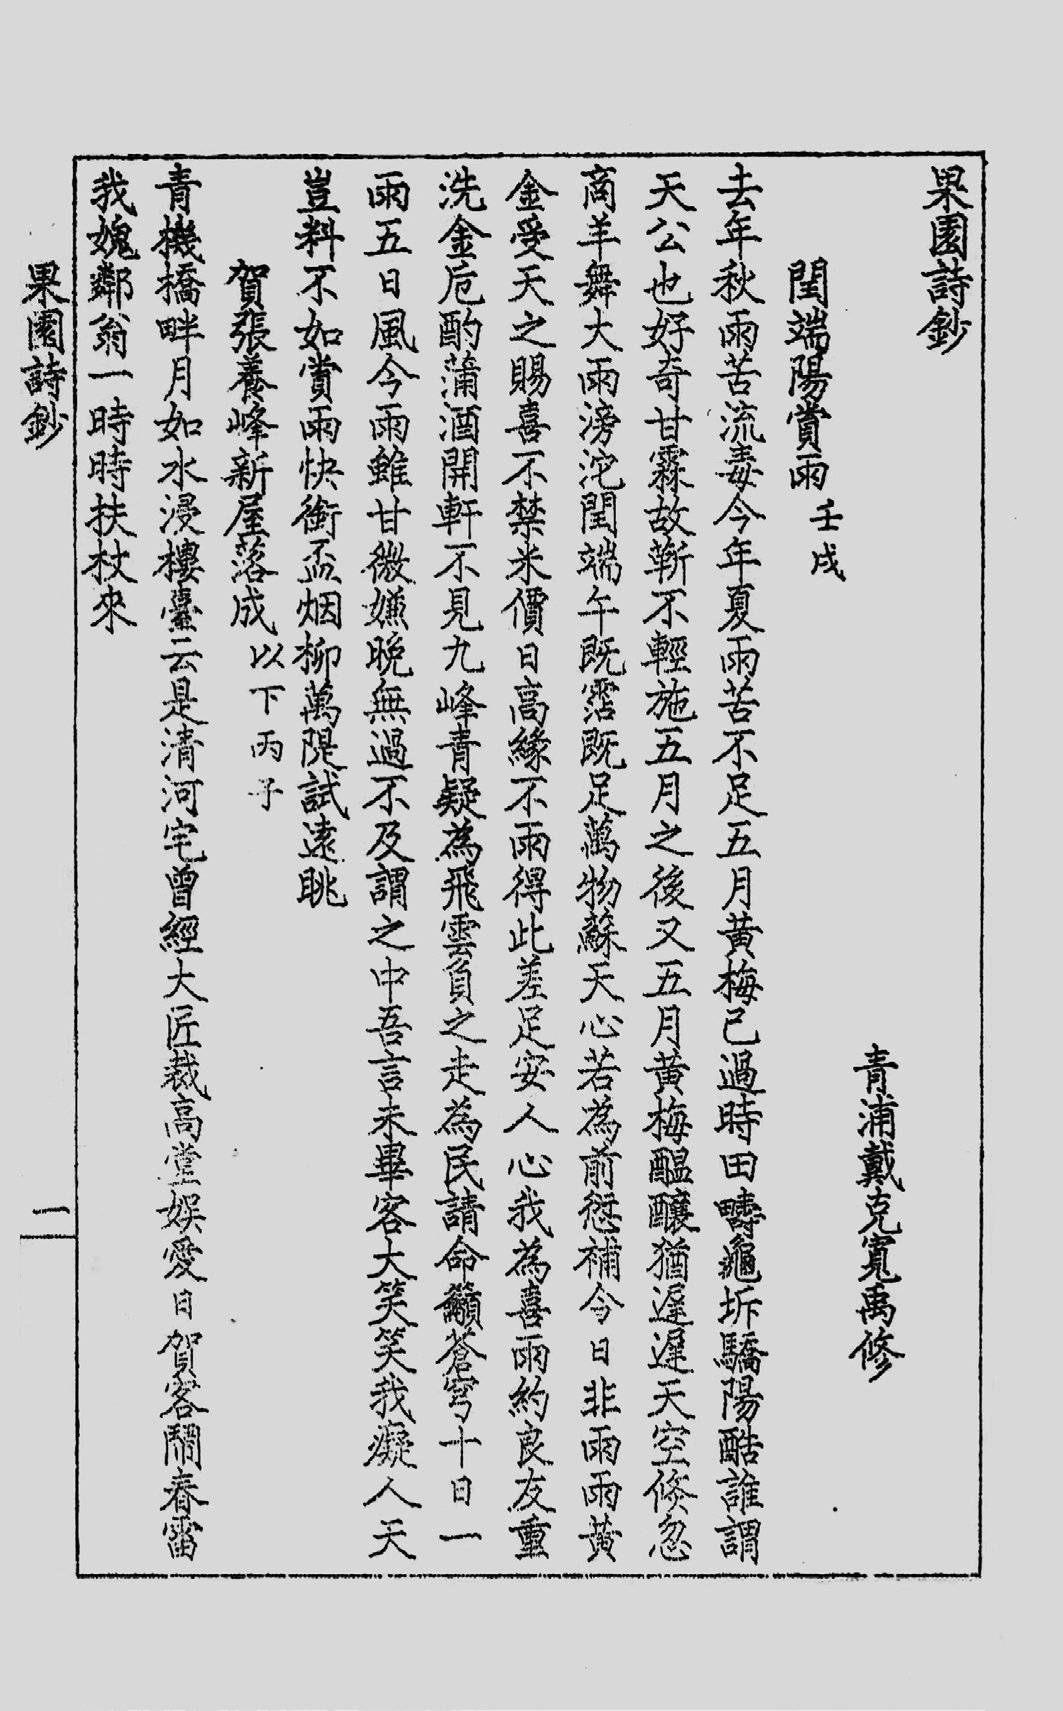 果園詩鈔
青浦戴克寬禹修
閏端陽賞雨 壬戌
去年秋雨苦流毒今年夏雨苦不足五月黃梅已過時田疇龜坼驕陽酷誰謂
天公也好奇甘霖故靳不輕施五月之後又五月黃梅醞釀猶遲遲天空倐忽
商羊舞大雨滂沱閏端午既霑既足萬物蘇天心若為前愆補今日非雨雨黃
金受天之賜喜不禁米價日高緣不雨得此差足安人心我為喜雨約良友重
洗金卮酌蒲酒開軒不見九峰青疑為飛雲負之走為民請命籲蒼穹十日一
雨五日風今雨雖甘微嫌晚無過不及謂之中吾言未畢客大笑笑我癡人天
豈料不如賞雨快銜盃烟柳萬隄試遠眺
賀張養峰新屋落成 以下丙子
青機橋畔月如水浸樓臺云是清河宅曾經大匠裁高堂娛愛日賀客鬧春雷
我媿鄰翁一時時扶杖來
果園詩鈔
一